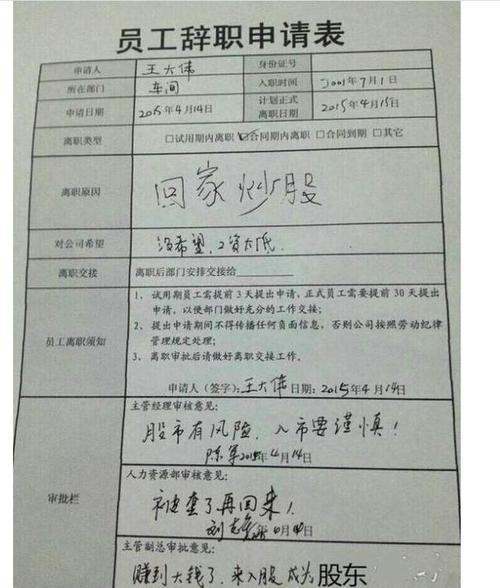 员工辞职申请表
申请人 王大伟 身份证号
所在部门 车间 入职时间 2001年7月1日
申请日期 2015年4月14日 计划正式离职日期 2015年4月15日
离职类型 □试用期内离职 ☑合同期内离职 □合同到期 □其它
离职原因 回家炒股
对公司希望 没希望，工资太低.
离职交接 离职后部门安排交接给
员工离职须知
1、试用期员工需提前3天提出申请，正式员工需要提前30天提出
申请，以便部门做好充分的工作交接；
2、提出申请期间不得传播任何负面信息，否则公司按照劳动纪律
管理规定处理；
3、离职审批后请做好离职交接工作。
申请人（签字）：王大伟 日期：2015年4月14日
审批栏
主管经理审核意见：
股市有风险，入市要谨慎！
陈军 2015年4月14日
人力资源部审核意见：
被套了再回来！
主管副总审批意见：
赚到大钱了，来入股成为 股东